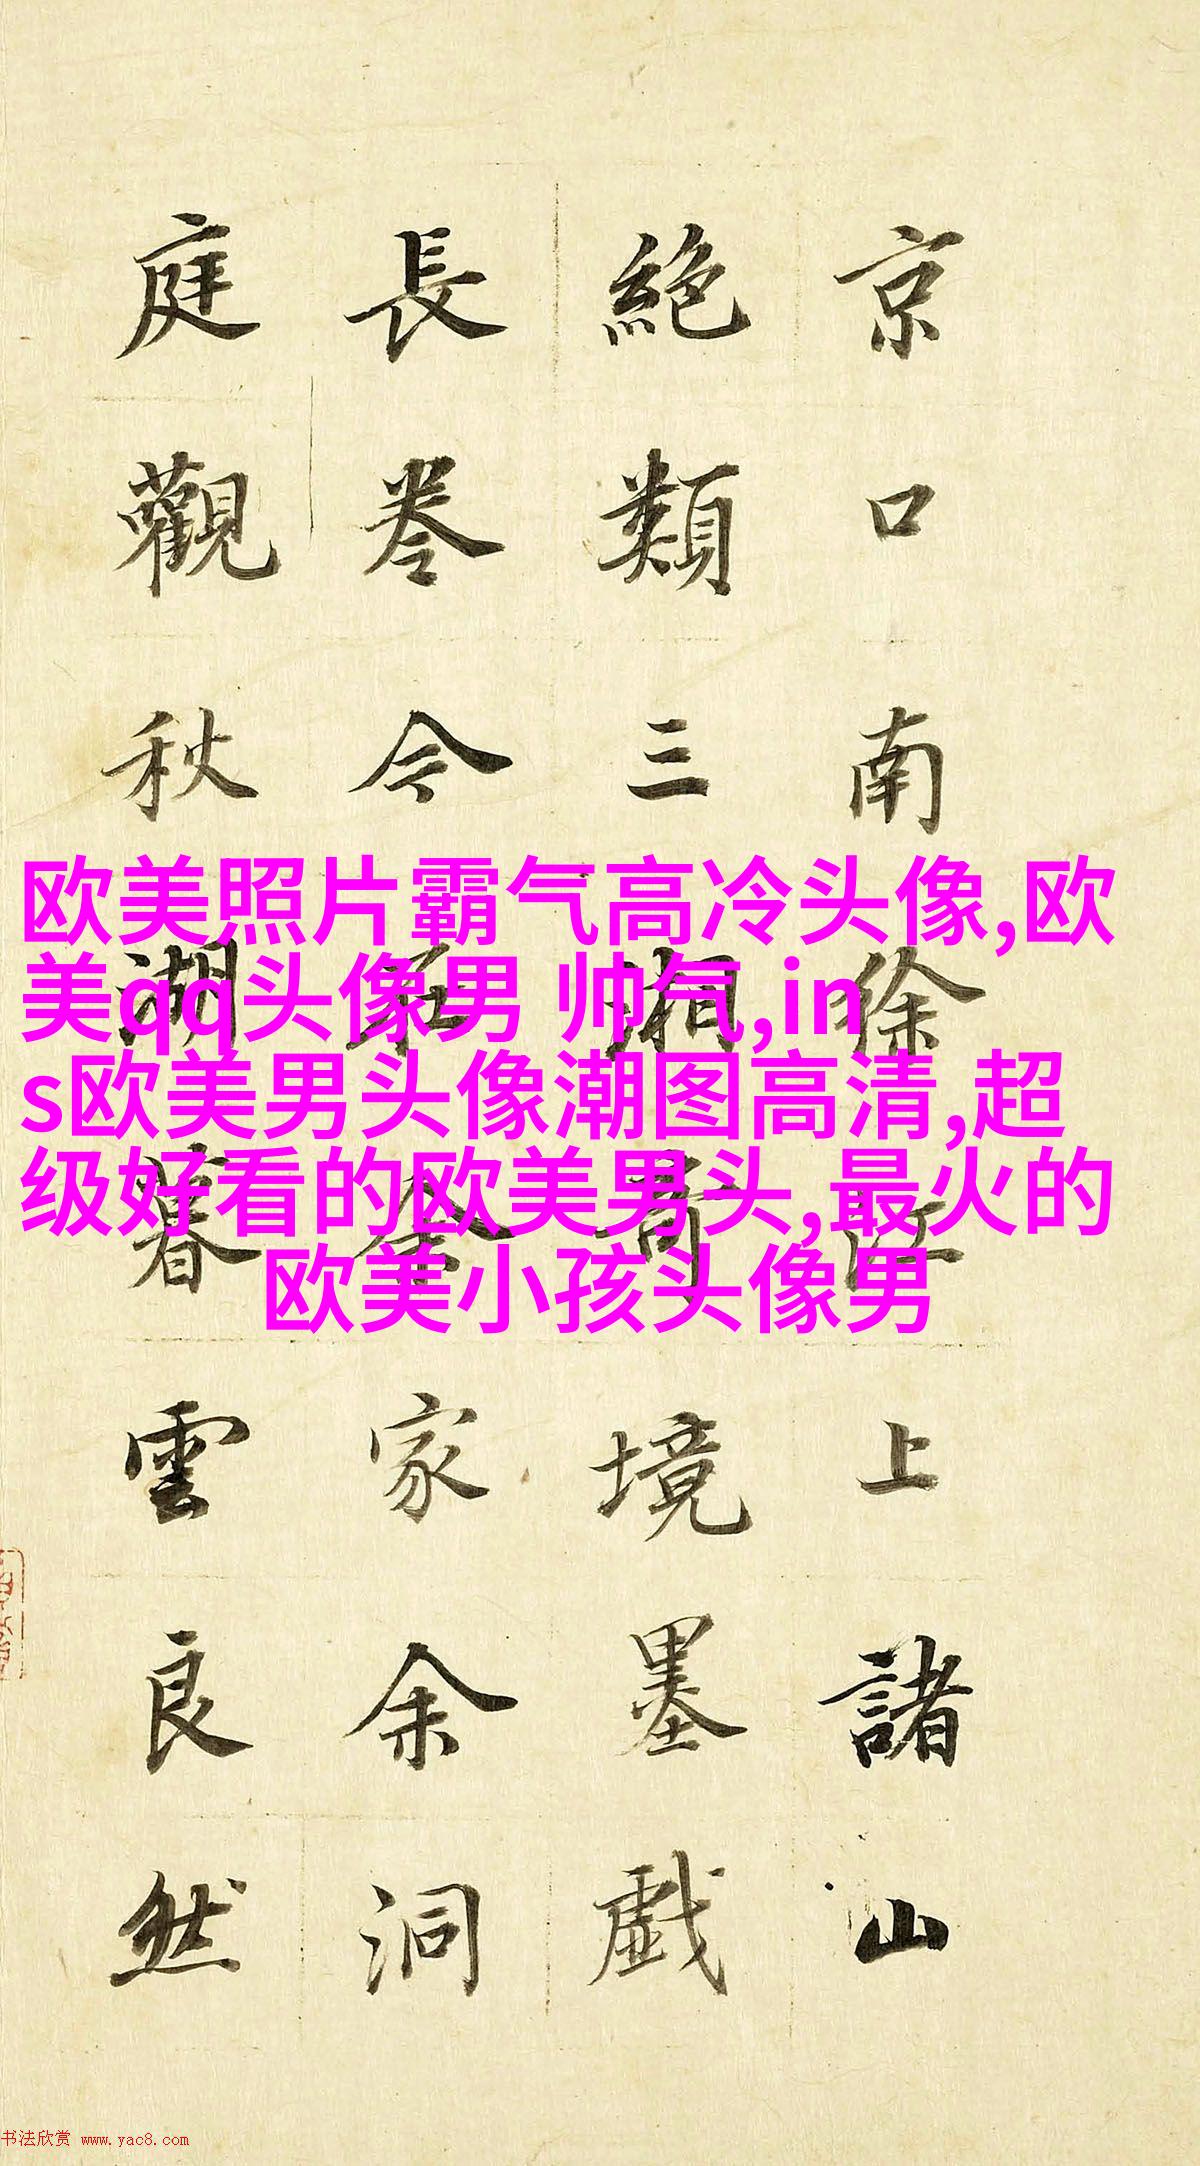 京口南徐江上諸山
絶類三湘奇境墨戲
長卷今在余家余洞
庭觀秋湖暮雲良然
欧美照片霸气高冷头像,欧
美qq头像男 帅气,in
s欧美男头像潮图高清,超
级好看的欧美男头,最火的
欧美小孩头像男
书法欣赏 www.yac8.com